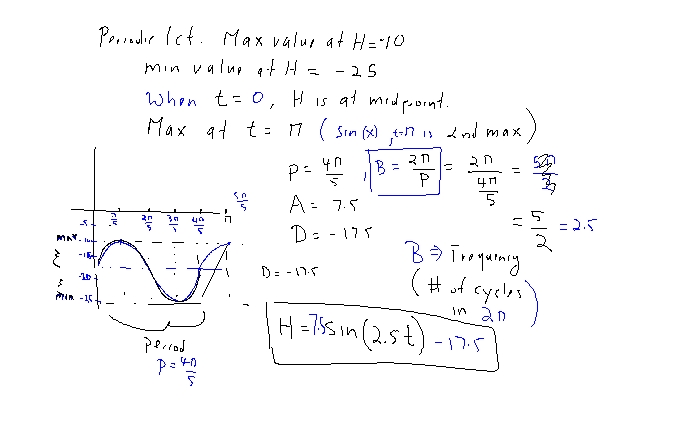 Periodic fct. Max value at H=-10
min value at H = -25
When t=0, H is at midpoint.
Max at t = π (sin(x), t=π is 2nd max)
P = 4π/5 , B = 2π/P = 2π/(4π/5) =
= 5/2 = 2.5
A = 7.5
D = -17.5
B ⇒ Frequency
(# of cycles in 2π)
π/5 2π/5 3π/5 4π/5 π 5π/5
-5
max -10
-15
-20
min -25
D = -17.5
Period
P = 4π/5
H = 7.5 sin(2.5t) - 17.5